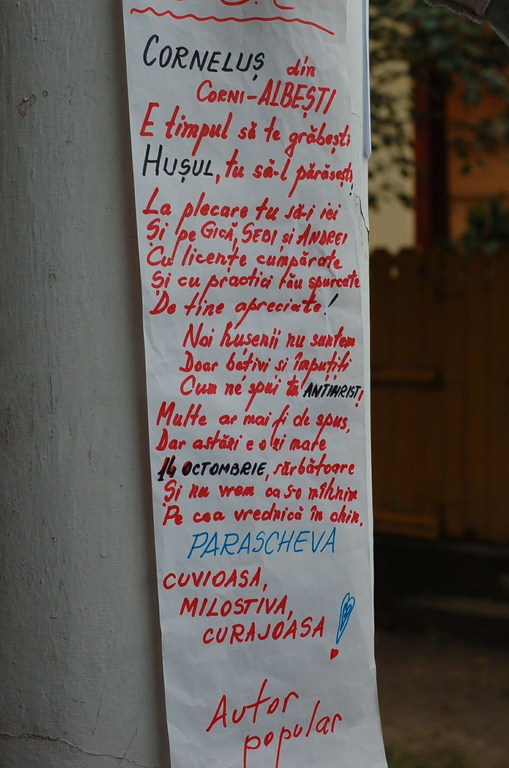 CORNELUȘ din
CORNI-ALBEȘTI
E timpul să te grăbești
HUȘUL, tu să-l părăsești!
La plecare tu să-i iei
Și pe GICĂ, SEBI și ANDREI
Cu licențe cumpărate
Și cu practici rău spurcate
De tine apreciate!
Noi husenii nu suntem
Doar bețivi și împuțiți
Cum ne spui tu ANTIHRIST!
Multe ar mai fi de spus,
Dar astăzi e o zi mare
14 OCTOMBRIE, sărbătoare
Și nu vrem ca s-o mîhnim
Pe cea vrednică în chin,
PARASCHEVA
CUVIOASA,
MILOSTIVA,
CURAJOASA!
Autor
popular